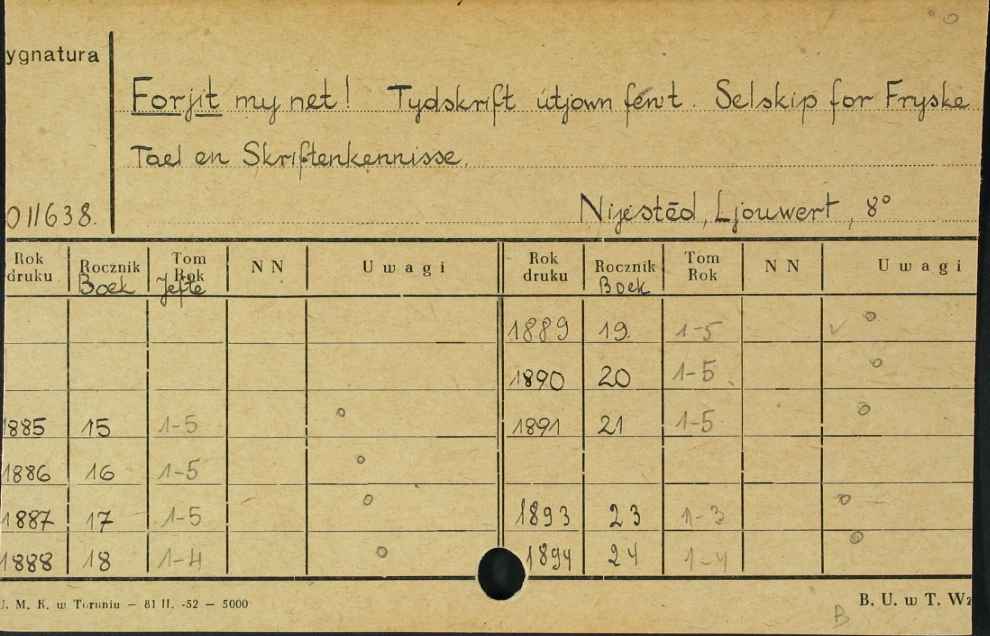 ygnatura
Forjit my net! Tydskrift útjown fen't. Selskip for Fryske
Tael en Skriftenkennisse.
011638. Nijestêd, Ljouwert, 8°
Rok druku Rocznik Boek Tom Rok Jefte NN Uwagi Rok druku Rocznik Boek Tom Rok NN Uwagi
1889 19 1-5 v o
1890 20 1-5 o
1885 15 1-5 o 1891 21 1-5 o
1886 16 1-5 o
1887 17 1-5 o 1893 23 1-3 o
1888 18 1-4 o 1894 24 1-4 o
U. M. K. w Toruniu — 81 II. -52 — 5000 B. U. w T. Wz
B